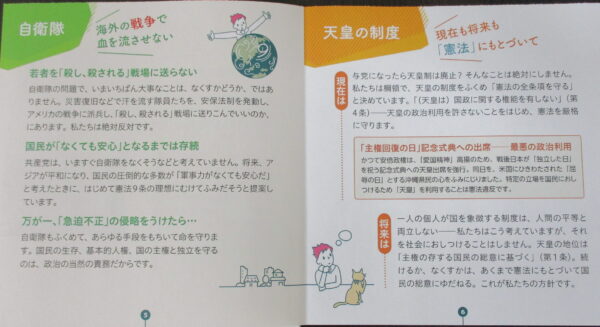 自衛隊
海外の戦争で
血を流させない
若者を「殺し、殺される」戦場に送らない
自衛隊の問題で、いまいちばん大事なことは、なくすかどうか、ではあ
りません。災害復旧などで汗を流す隊員たちを、安保法制を発動し、
アメリカの戦争に派兵し、「殺し、殺される」戦場に送りこんでいいのか、
にあります。私たちは絶対反対です。
国民が「なくても安心」となるまでは存続
共産党は、いますぐ自衛隊をなくそうなどと考えていません。将来、ア
ジアが平和になり、国民の圧倒的な多数が「軍事力がなくても安心だ」
と考えたときに、はじめて憲法9条の理想にむけてふみだそうと提案し
ています。
万が一、「急迫不正」の侵略をうけたら…
自衛隊もふくめて、あらゆる手段をもちいて命を守りま
す。国民の生存、基本的人権、国の主権と独立を守る
のは、政治の当然の責務だからです。
5
天皇の制度
現在も将来も
「憲法」にもとづいて
現在は
与党になったら天皇制は廃止？そんなことは絶対にしません。
私たちは綱領で、天皇の制度をふくめ「憲法の全条項を守る」
と決めています。「（天皇は）国政に関する権能を有しない」（第
4条）――天皇の政治利用を許さないことをはじめ、憲法を厳格
に守ります。
「主権回復の日」記念式典への出席――最悪の政治利用
かつて安倍政権は、「愛国精神」高揚のため、戦後日本が「独立した日」
を祝う記念式典への天皇出席を強行。同日を、米国にひきわたされた「屈
辱の日」とする沖縄県民の心をふみにじりました。特定の立場を国民におし
つけるため「天皇」を利用することは憲法違反です。
将来は
一人の個人が国を象徴する制度は、人間の平等と
両立しない――私たちはこう考えていますが、それ
を社会におしつけることはしません。天皇の地位は
「主権の存する国民の総意に基づく」（第1条）。続
けるか、なくすかは、あくまで憲法にもとづいて国
民の総意にゆだねる。これが私たちの方針です。
6